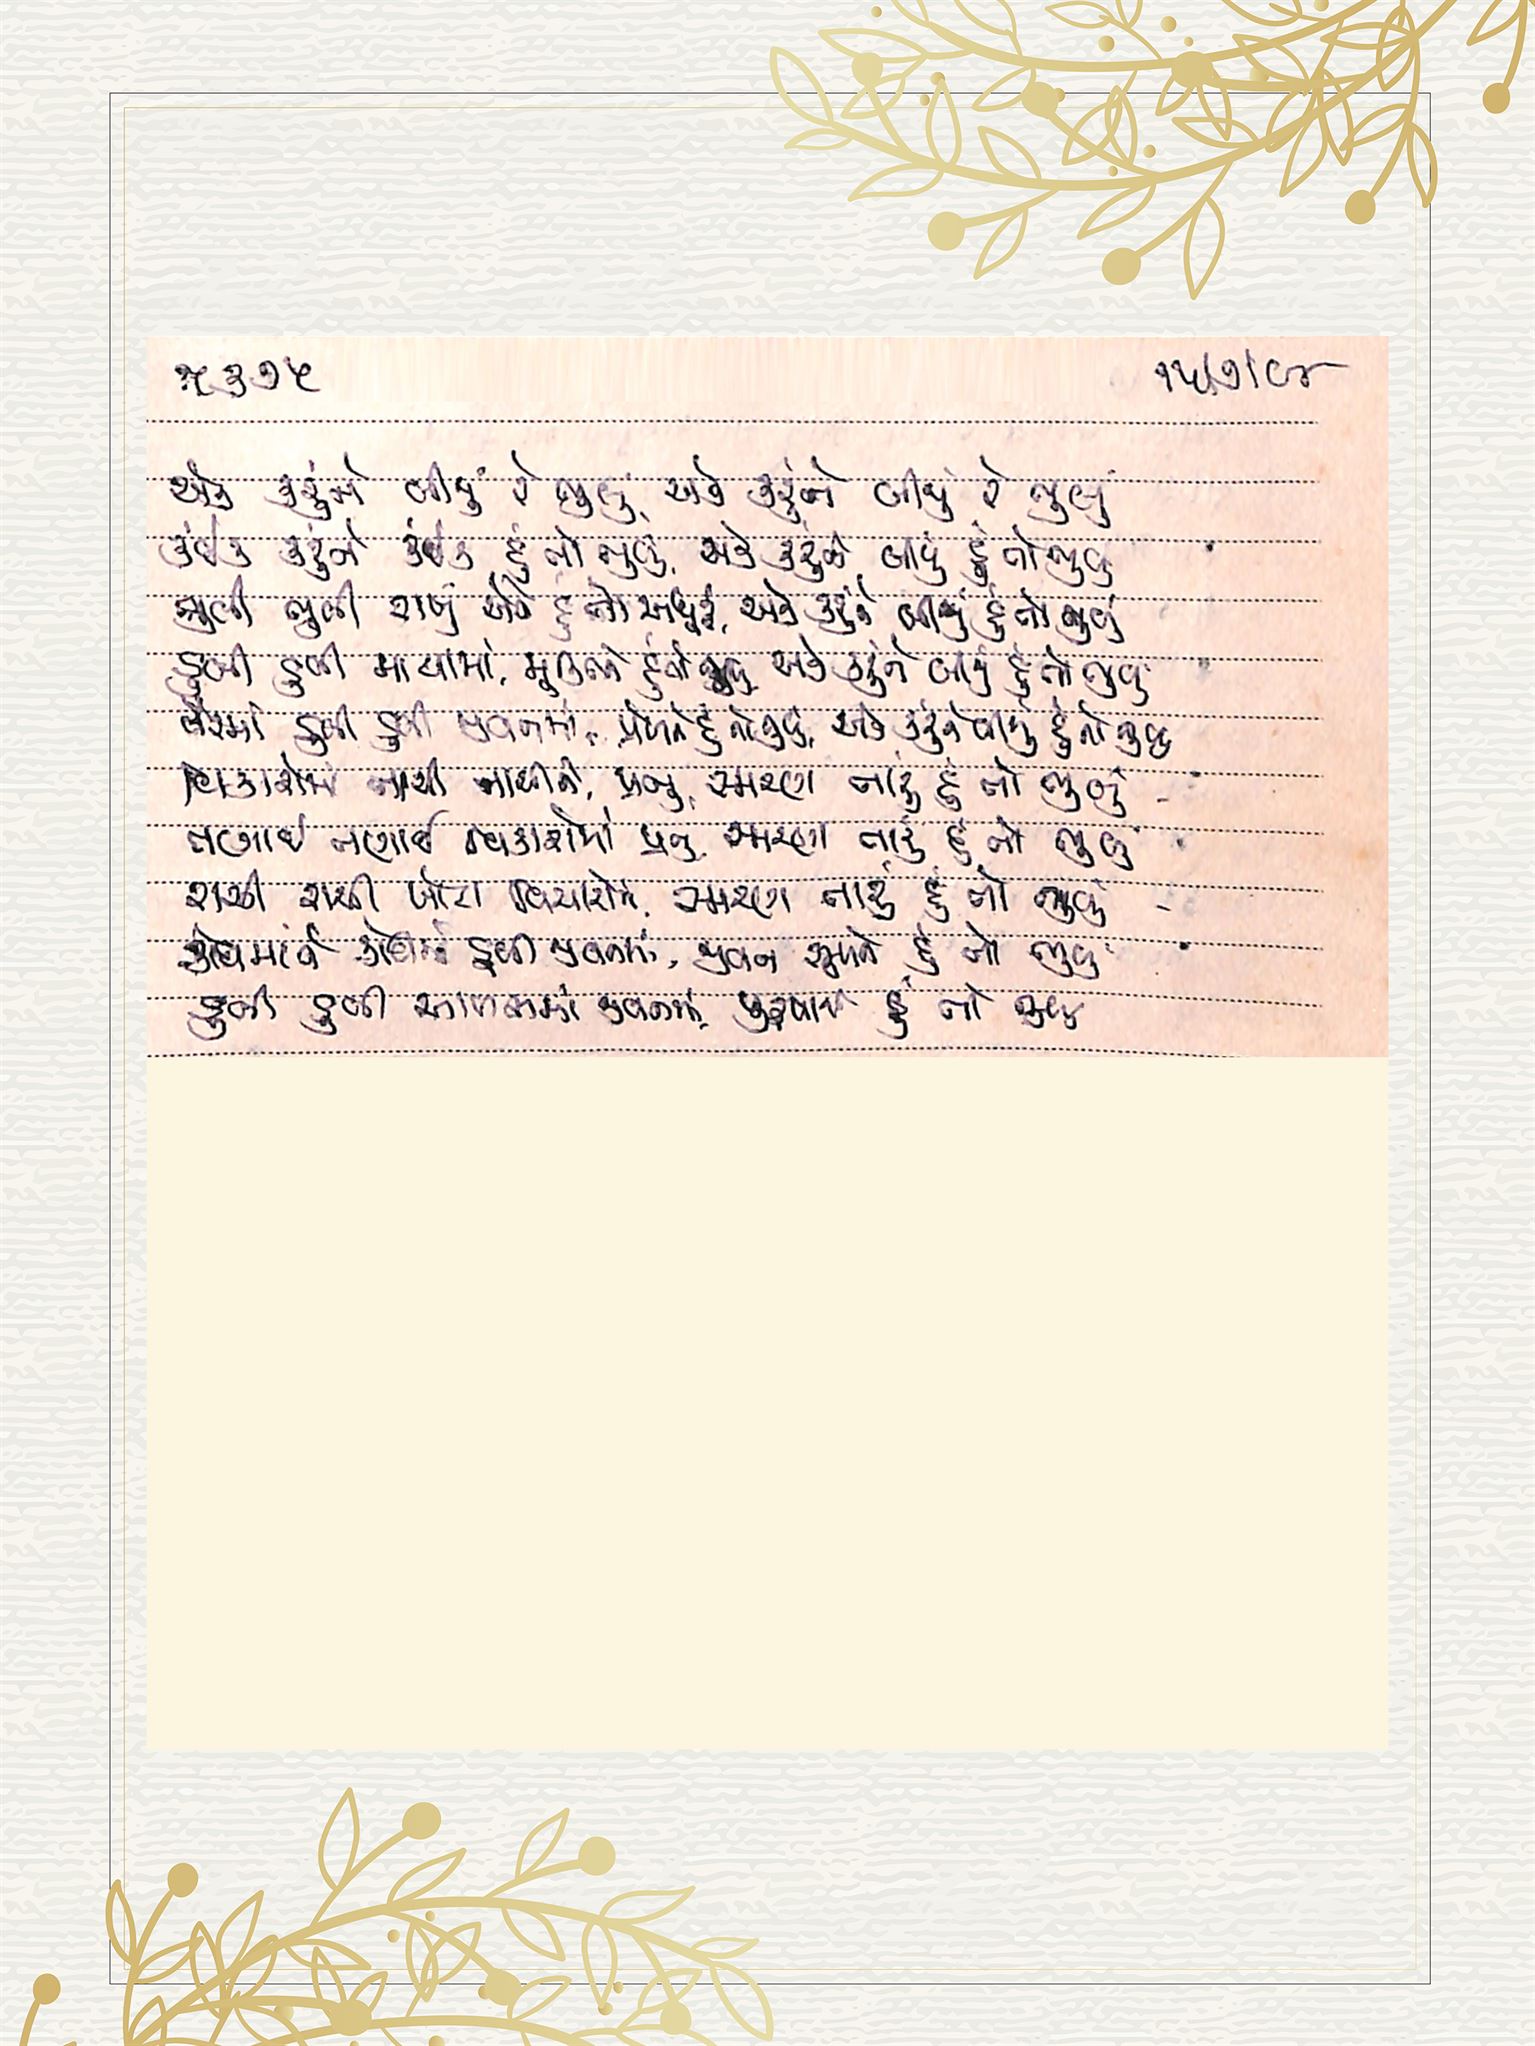 ૫૩૭૫ ૧૫/૭/૯૪
એક કરુંને બીજું રે ભુલું, એક કરુંને બીજું રે ભુલું
કંઈક કરુંને કંઈક હું તો ભુલું, એક કરુંને બીજું હું તો ભુલું
ભુલી ભુલી રાખું એને હું તો અધૂરું, એક કરુંને બીજું હું તો ભુલું
ડુબી ડુબી માયામાં, મૂક્તિને હું તો ભુલું એક કરુંને બીજું હું તો ભુલું
વેરમાં ડુબી ડુબી જીવનમાં, પ્રેમને હું તો ભુલું, એક કરુંને બીજું હું તો ભુલું
વિકારોમાં નાચી નાચીને, પ્રભુ, સ્મરણ તારું હું તો ભુલું
તણાઈ તણાઈ વિકારોમાં પ્રભુ સ્મરણ તારું હું તો ભુલું
રાચી રાચી ખોટા વિચારોમાં, સ્મરણ તારું હું તો ભુલું
ક્રોધમાં ને ક્રોધમાં ડુબી જીવનમાં, જીવન હું તો ભુલું
ડુબી ડુબી આળસમાં જીવનમાં, પુરુષાર્થ હું તો ભુલું